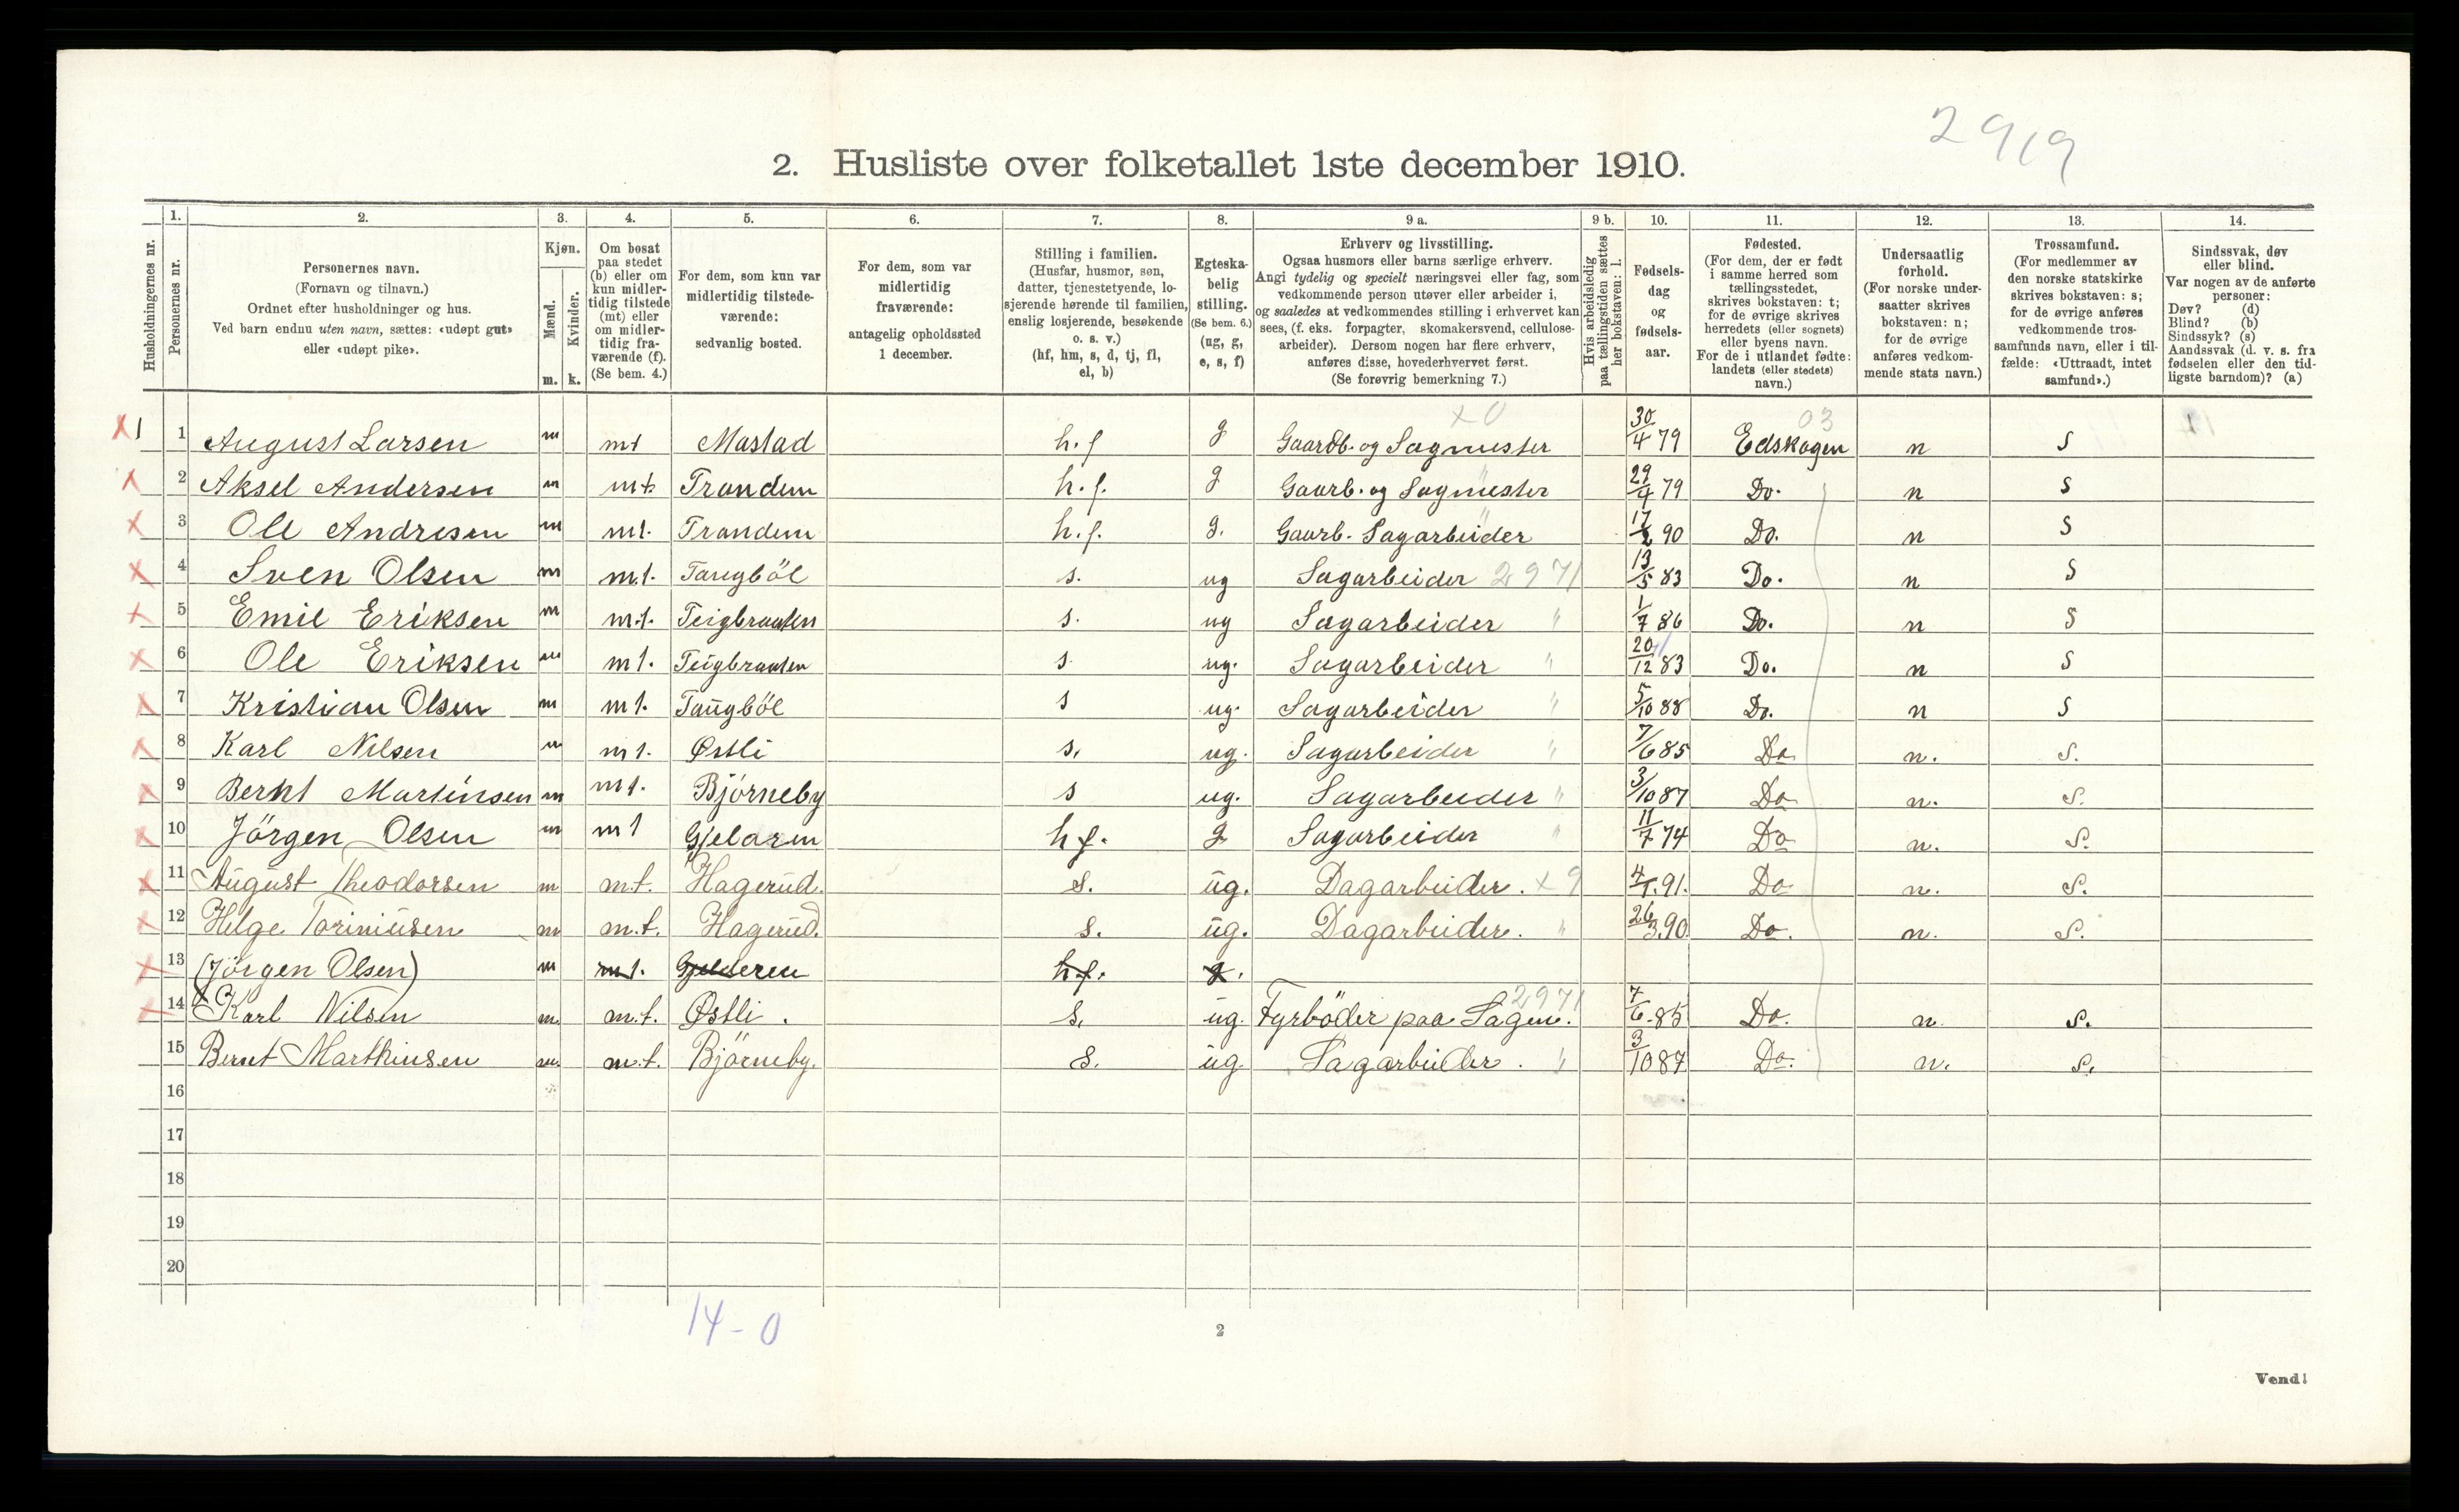 2919
2. Husliste over folketallet 1ste december 1910.
1. 2. 3. 4. 5. 6. 7. 8. 9 a. 9 b. 10. 11. 12. 13. 14.
Husholdningernes nr.
Personernes nr.
Personernes navn.
(Fornavn og tilnavn.)
Ordnet efter husholdninger og hus.
Ved barn endnu uten navn, sættes: «udøpt gut»
eller «udøpt pike».
Kjøn.
Mænd.
Kvinder.
m. k.
Om bosat
paa stedet
(b) eller om
kun midler-
tidig tilstede
(mt) eller
om midler-
tidig fra-
værende (f).
(Se bem. 4.)
For dem, som kun var
midlertidig tilstede-
værende:
sedvanlig bosted.
For dem, som var
midlertidig
fraværende:
antagelig opholdssted
1 december.
Stilling i familien.
(Husfar, husmor, søn,
datter, tjenestetyende, lo-
sjerende hørende til familien,
enslig losjerende, besøkende
o. s. v.)
(hf, hm, s, d, tj, fl,
el, b)
Egteska-
belig
stilling.
(Se bem. 6.)
(ug, g,
e, s, f)
Erhverv og livsstilling.
Ogsaa husmors eller barns særlige erhverv.
Angi tydelig og specielt næringsvei eller fag, som
vedkommende person utøver eller arbeider i,
og saaledes at vedkommendes stilling i erhvervet kan
sees, (f. eks. forpagter, skomakersvend, cellulose-
arbeider). Dersom nogen har flere erhverv,
anføres disse, hovederhvervet først.
(Se forøvrig bemerkning 7.)
Hvis arbeidsledig
paa tællingstiden sættes
her bokstaven: l.
Fødsels-
dag
og
fødsels-
aar.
Fødested.
(For dem, der er født
i samme herred som
tællingsstedet,
skrives bokstaven: t;
for de øvrige skrives
herredets (eller sognets)
eller byens navn.
For de i utlandet fødte:
landets (eller stedets)
navn.)
Undersaatlig
forhold.
(For norske under-
saatter skrives
bokstaven: n;
for de øvrige
anføres vedkom-
mende stats navn.)
Trossamfund.
(For medlemmer av
den norske statskirke
skrives bokstaven: s;
for de øvrige anføres
vedkommende tros-
samfunds navn, eller i til-
fælde: «Uttraadt, intet
samfund».)
Sindssvak, døv
eller blind.
Var nogen av de anførte
personer:
Døv? (d)
Blind? (b)
Sindssyk? (s)
Aandssvak (d. v. s. fra
fødselen eller den tid-
ligste barndom)? (a)
x 0 03
x 1 1 August Larsen m mt Mastad h.f g Gaardb. og Sagmester 30/4 79 Edskogen n S
x 2 Aksel Andersen m mt. Trandem h.f. g Gaarb. og Sagmester " 29/4 79 Do. n S
x 3 Ole Andresen m mt. Trandem h.f. g. Gaarb. Sagarbeider " 17/2 90 Do. n S
x 4 Sven Olsen m m.t. Taugböl s. ug Sagarbeider 2971 13/5 83 Do. n S
x 5 Emil Eriksen m m.t. Teigbraaten s. ug Sagarbeider " 1/7 86 Do. n S
x 6 Ole Eriksen m mt. Teigbraaten s ug. Sagarbeider " 20/12 83 Do. n S
x 7 Kristian Olsen m mt. Taugböl s ug. Sagarbeider " 5/10 88 Do. n S
x 8 Karl Nilsen m mt. Østli s. ug. Sagarbeider " 7/6 85 Do n. S.
x 9 Bernt Martinsen m mt. Björneby s ug. Sagarbeider " 3/10 87 Do n. S.
x 10 Jörgen Olsen m mt Gjelaren hf. g Sagarbeider " 11/7 74 Do n. S.
x 11 August Theodorsen m m.t. Hagerud. s. ug. Dagarbeider. x 9 4/1. 91. Do n. S.
x 12 Helge Toriniusen m m.t. Hagerud. s. ug. Dagarbeider. " 26/3 90. Do. n. S.
x 13 (Jörgen Olsen) m mt. Gjelderen hf. g.
x 14 Karl Nilsen m. m.t. Østli. s. ug. Fyrböder paa Sagen. 2971 7/6. 85 Do. n. S.
15 Bernt Marthinsen m. m.t. Björneby. s. ug Sagarbeider. " 3/10 87 Do. n. S.
16
17
18
19
20
14 - 0
2
Vend!